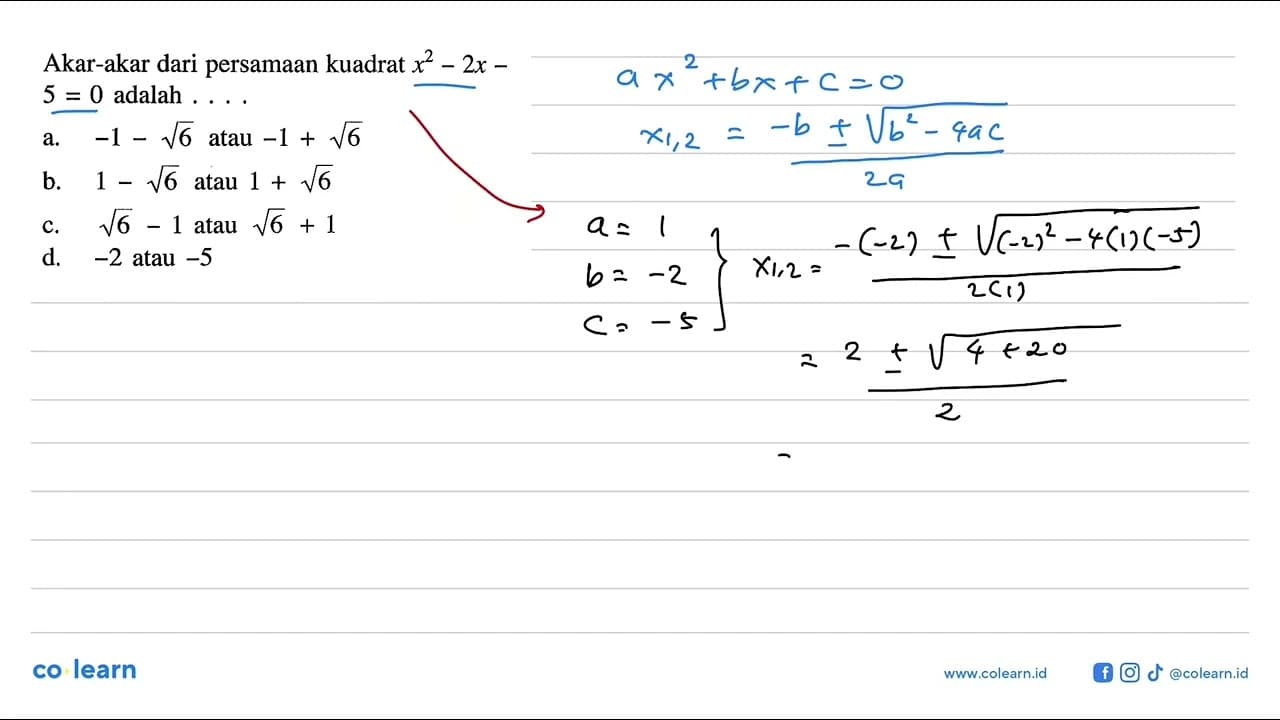 Akar-akar dari persamaan kuadrat x² – 2x –
5 = 0 adalah . . . .
a. –1 – √6 atau –1 + √6
b. 1 – √6 atau 1 + √6
c. √6 – 1 atau √6 + 1
d. –2 atau –5
ax² + bx + c = 0
x1,2 = -b ± √b² - 4ac
2a
a = 1
b = -2
c = -5
x1,2 = -(-2) ± √(-2)² - 4(1)(-5)
2(1)
= 2 ± √4 + 20
2
-
co learn
www.colearn.id
@colearn.id